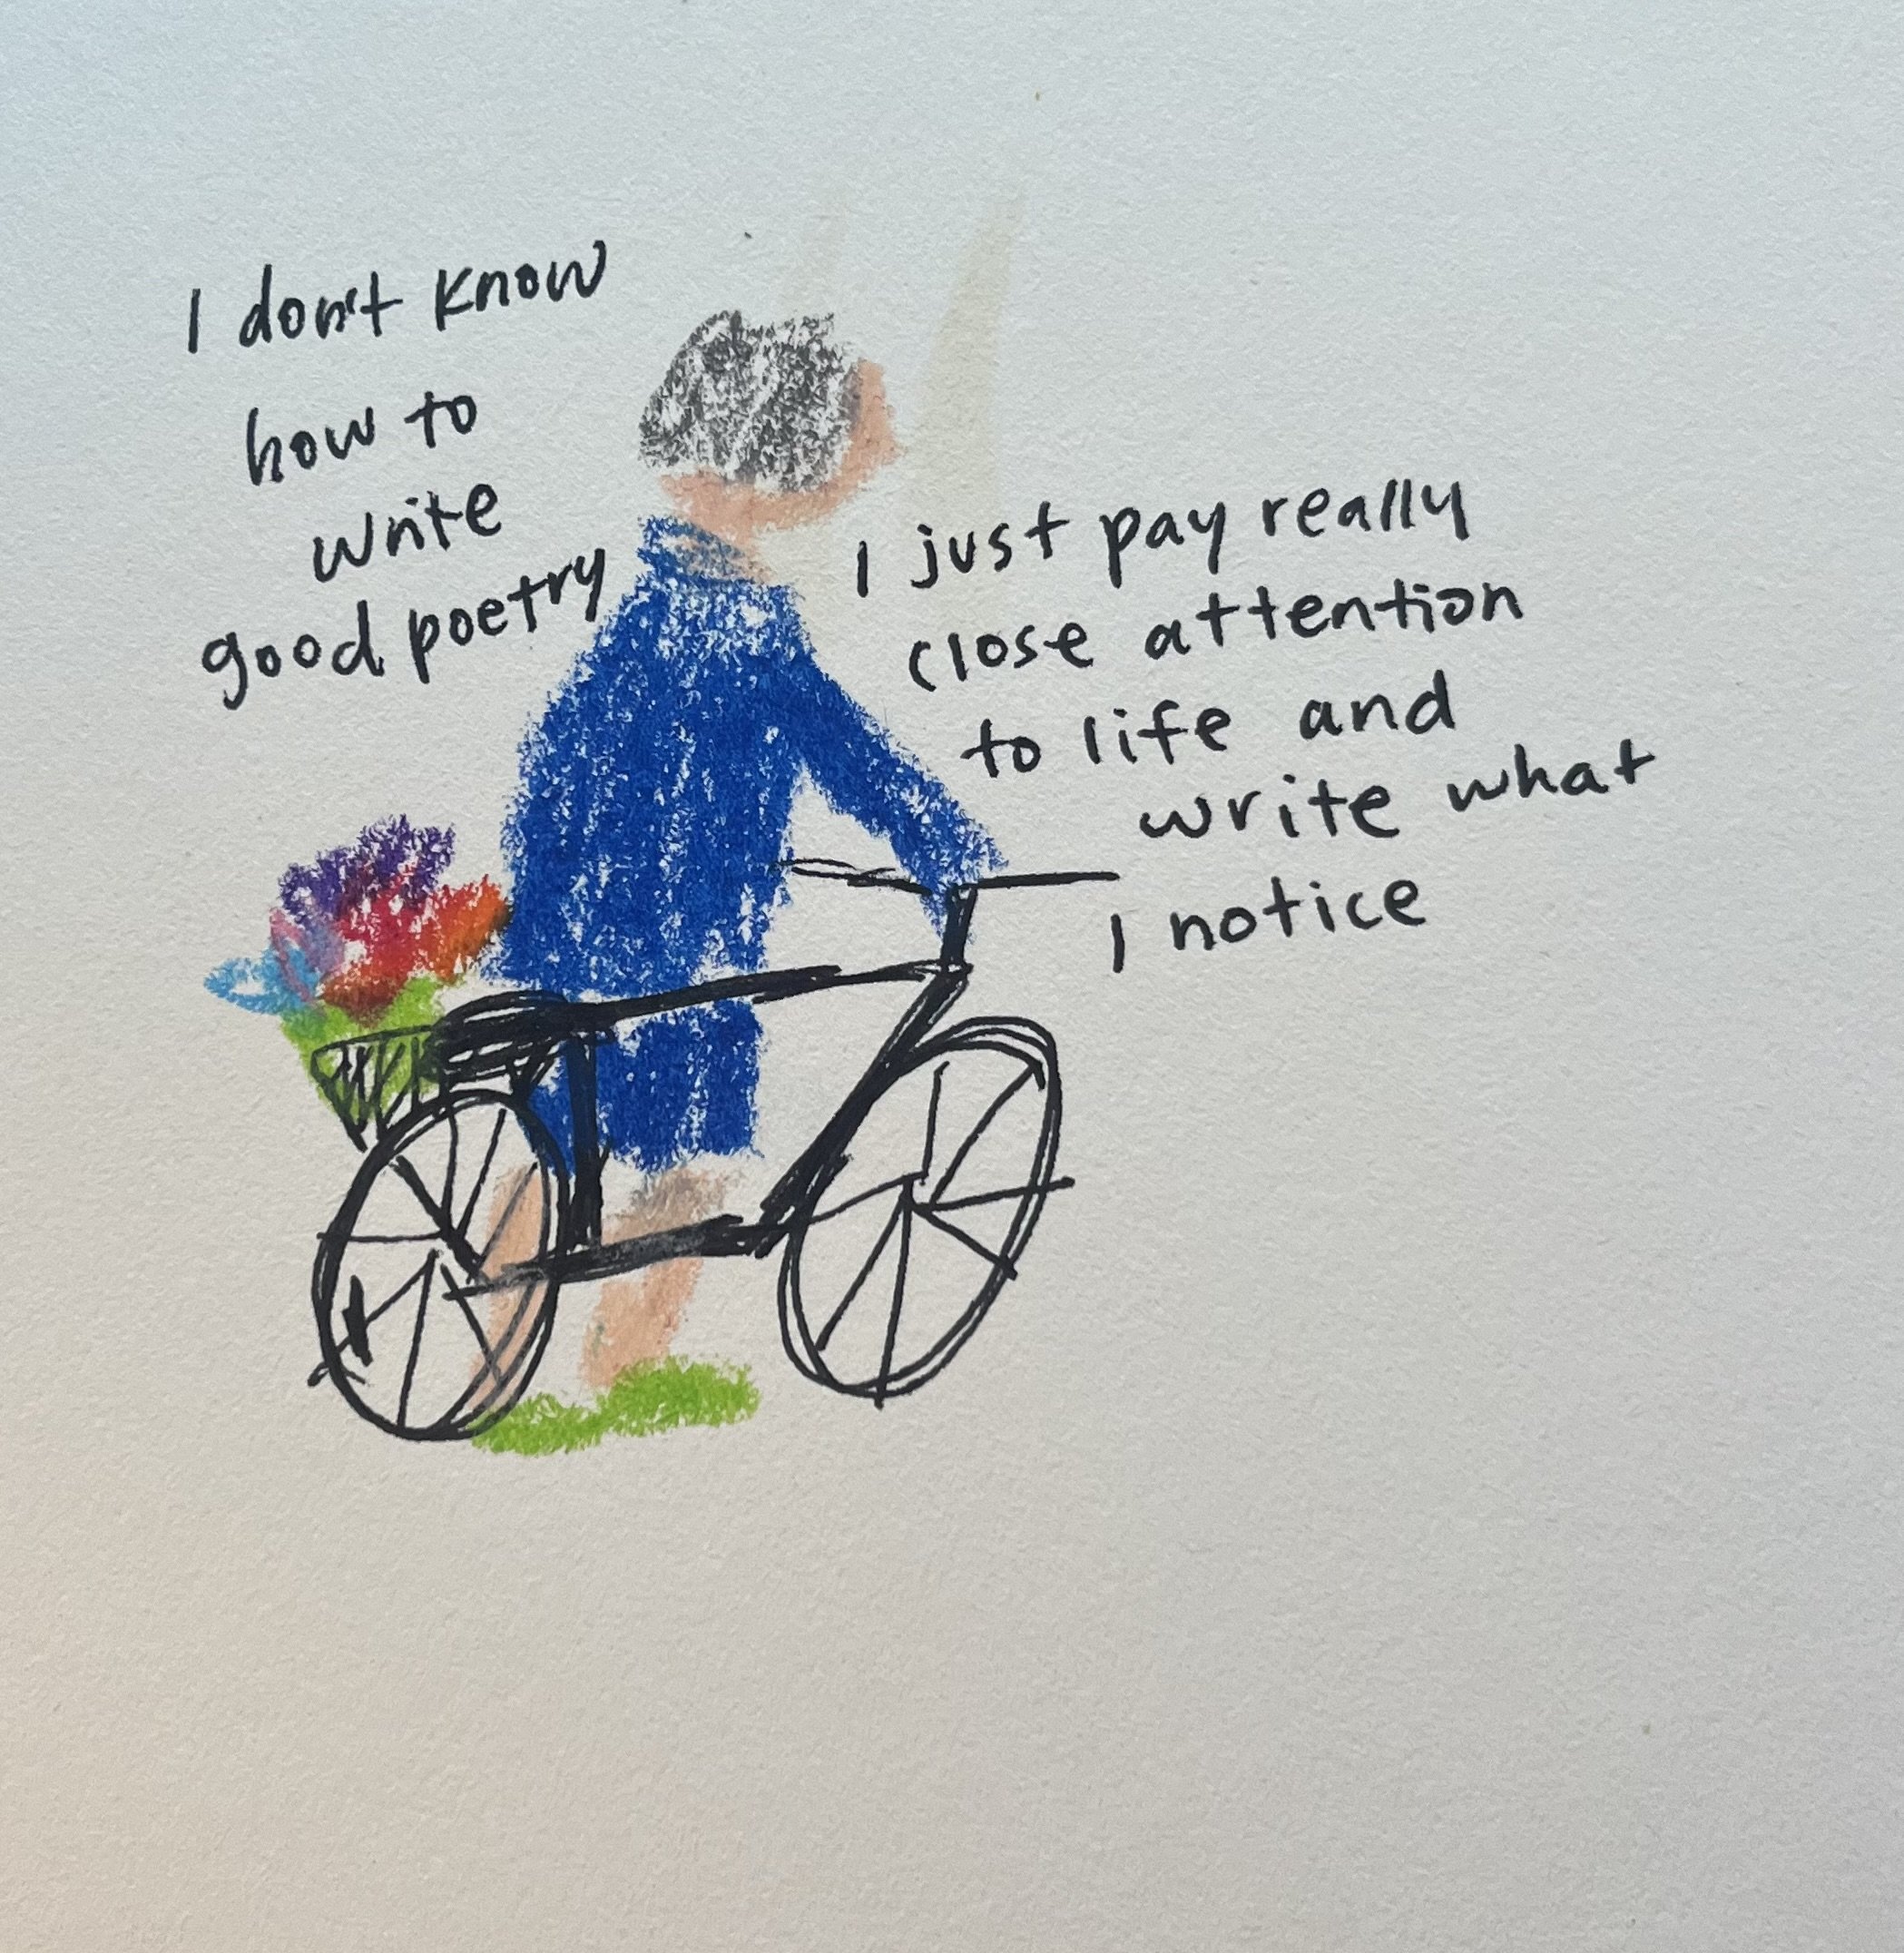 I don't know
how to
write
good poetry
I just pay really
close attention
to life and
write what
I notice